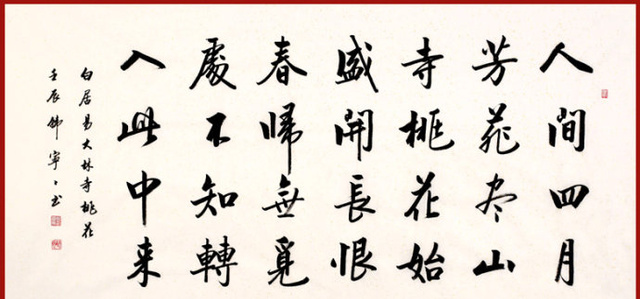 人間四月
芳菲尽山
寺桃花始
盛開長恨
春帰無覓
處不知轉
入此中来
白居易大林寺桃花
壬辰寧々书